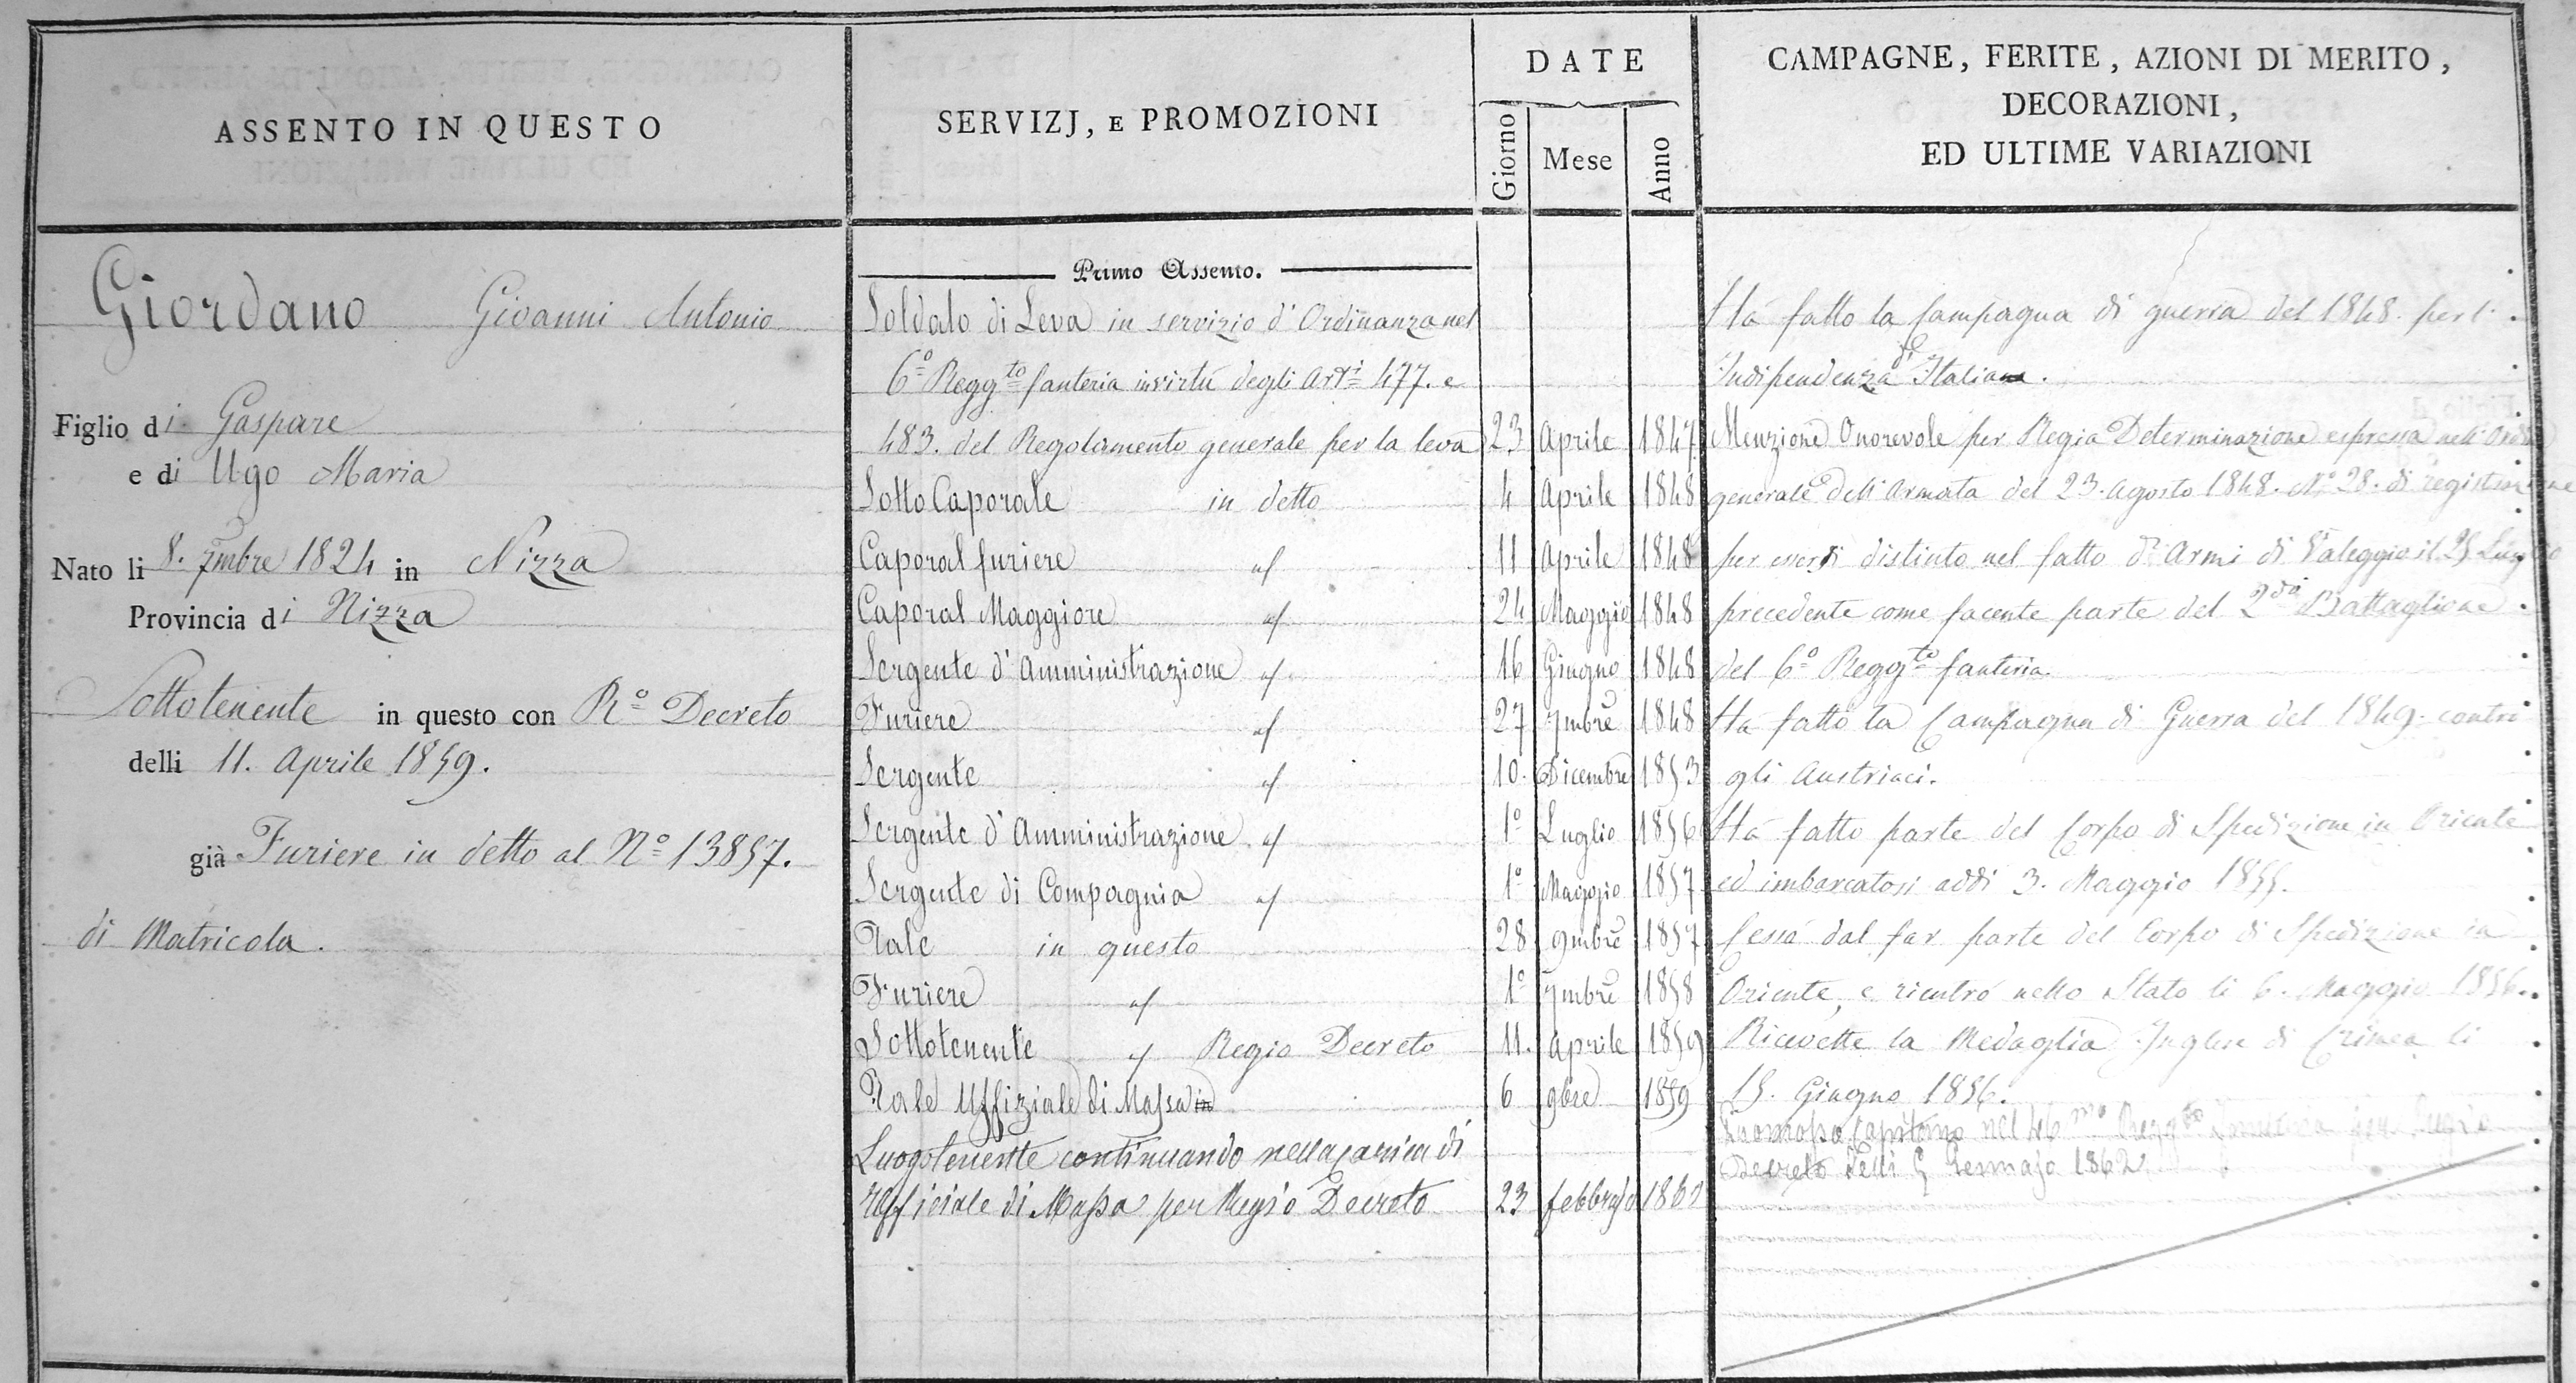 ASSENTO IN QUESTO
Giordano Giovanni Antonio
Figlio di Gaspare
e di Ugo Maria
Nato li 8. 7mbre 1824 in Nizza
Provincia di Nizza
Sottotenente in questo con R.o Decreto
delli 11. Aprile 1859.
già Furiere in detto al N.o 13857.
di Matricola.
SERVIZJ, E PROMOZIONI
DATE
Giorno Mese Anno
Primo Assento.
Soldato di Leva in servizio d'Ordinanza nel
6.o Regg.to fanteria in virtù degli Art.i 477. e
483. del Regolamento generale per la leva 23 Aprile 1847
Sotto Caporale in detto 4 Aprile 1848
Caporal furiere " 11 Aprile 1848
Caporal Maggiore " 24 Maggio 1848
Sergente d'Amministrazione " 16 Giugno 1848
Furiere " 27 7mbre 1848
Sergente " 10. Dicembre 1853
Sergente d'Amministrazione " 1.o Luglio 1856
Sergente di Compagnia " 1.o Maggio 1857
Tale in questo 28 9mbre 1857
Furiere " 1.o 7mbre 1858
Sottotenente " Regio Decreto 11. Aprile 1859
Tale Uffiziale di Massa in 6 9bre 1859
Luogotenente continuando nella carica di
Ufficiale di Massa per Regio Decreto 23 febbrajo
CAMPAGNE, FERITE, AZIONI DI MERITO,
DECORAZIONI,
ED ULTIME VARIAZIONI
Ha fatto la Campagna di guerra del 1848. per l'
Indipendenza d'Italia.
Menzione Onorevole per Regia Determinazione espressa nell'Ordine
generale dell'Armata del 23. Agosto 1848. N.o 28. di registrazione
per essersi distinto nel fatto d'Armi di Valeggio il 25 Luglio
precedente come facente parte del 2.do Battaglione
del 6.o Regg.to fanteria.
Ha fatto la Campagna di Guerra del 1849. contro
gli Austriaci.
Ha fatto parte del Corpo di Spedizione in Oriente
ed imbarcatosi addì 3. Maggio 1855.
Cessò dal far parte del Corpo di Spedizione in
Oriente, e rientrò nello Stato li 6. Maggio 1856.
Ricevette la Medaglia Inglese di Crimea li
15. Giugno 1856.
Promosso Capitano nel 46.mo Regg.to Fanteria per Regio
Decreto delli 5 Gennajo 1862